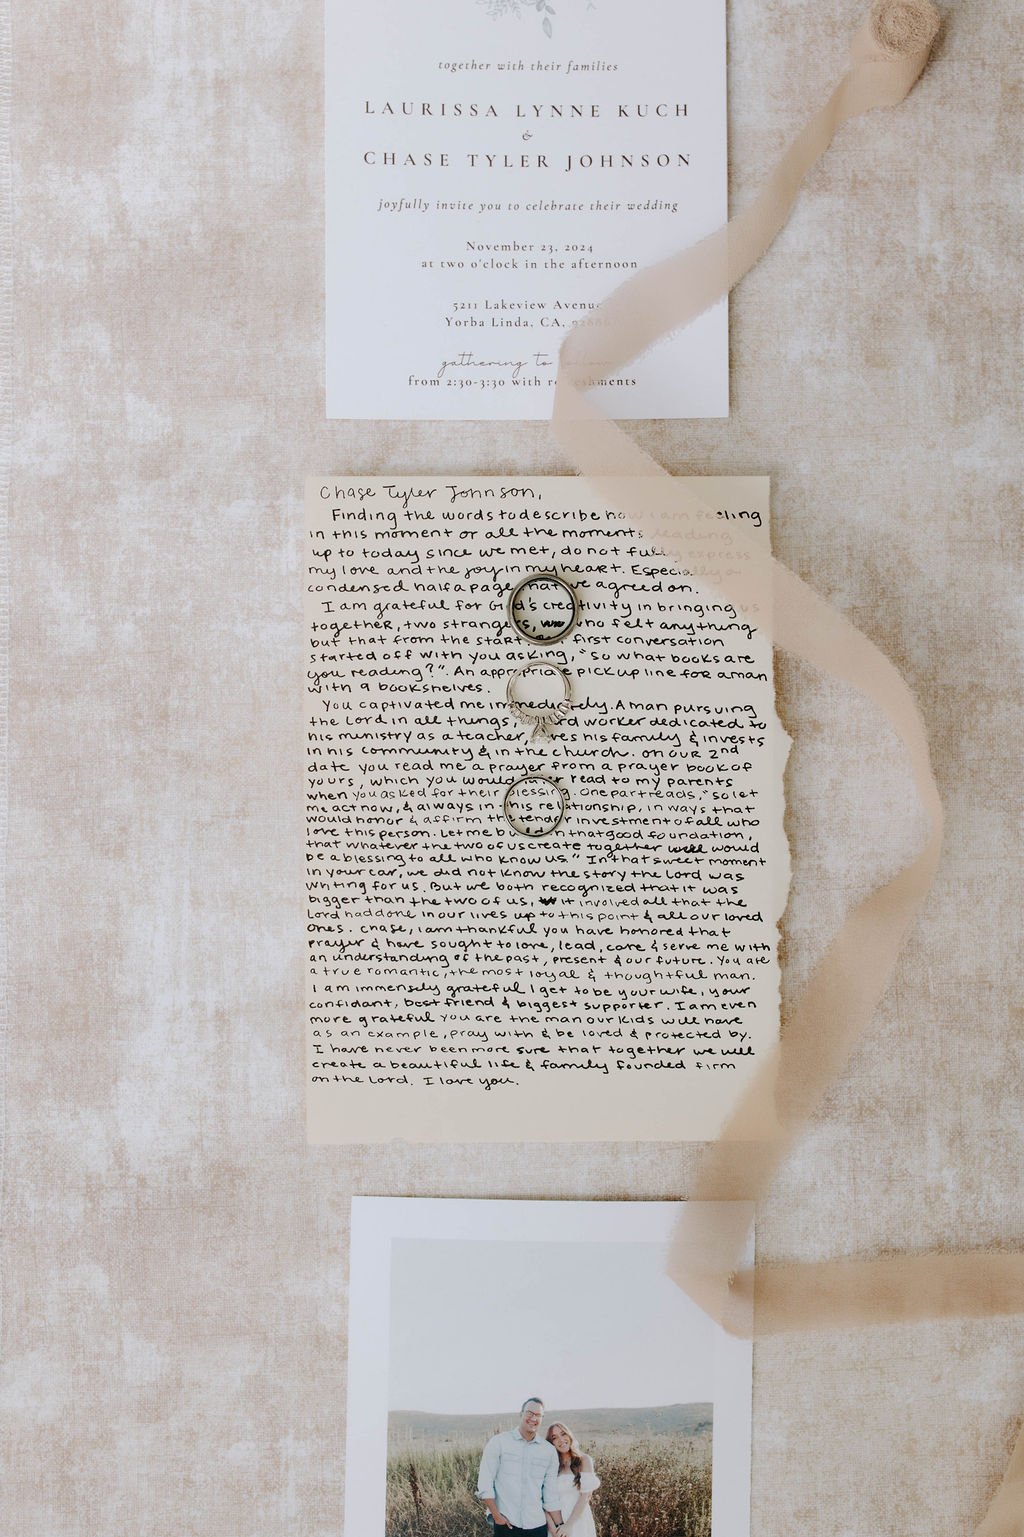 together with their families
LAURISSA LYNNE KUCH
&
CHASE TYLER JOHNSON
joyfully invite you to celebrate their wedding
November 23, 2024
at two o'clock in the afternoon
5211 Lakeview Avenue
Yorba Linda, CA, 92886
gathering to follow
from 2:30-3:30 with refreshments
Chase Tyler Johnson,
Finding the words to describe how I am feeling
in this moment or all the moments leading
up to today since we met, do not fully express
my love and the joy in my heart. Especially a
condensed half a page that we agreed on.
I am grateful for God's creativity in bringing us
together, two strangers, who felt anything
but that from the start. Our first conversation
started off with you asking, "So what books are
you reading?". An appropriate pick up line for a man
with 9 bookshelves.
You captivated me immediately. A man pursuing
the Lord in all things, hard worker dedicated to
his ministry as a teacher, loves his family & invests
in his community & in the church. On our 2nd
date you read me a prayer from a prayer book of
yours, which you would later read to my parents
when you asked for their blessing. One part reads, "so let
me act now, & always in this relationship, in ways that
would honor & affirm the tender investment of all who
love this person. Let me build on that good foundation,
that whatever the two of us create together would
be a blessing to all who know us." In that sweet moment
in your car, we did not know the story the Lord was
writing for us. But we both recognized that it was
bigger than the two of us, it involved all that the
Lord had done in our lives up to this point & all our loved
ones. Chase, I am thankful you have honored that
prayer & have sought to love, lead, care & serve me with
an understanding of the past, present & our future. You are
a true romantic, the most loyal & thoughtful man.
I am immensely grateful I get to be your wife, your
confidant, best friend & biggest supporter. I am even
more grateful you are the man our kids will have
as an example, pray with & be loved & protected by.
I have never been more sure that together we will
create a beautiful life & family founded firm
on the Lord. I love you.